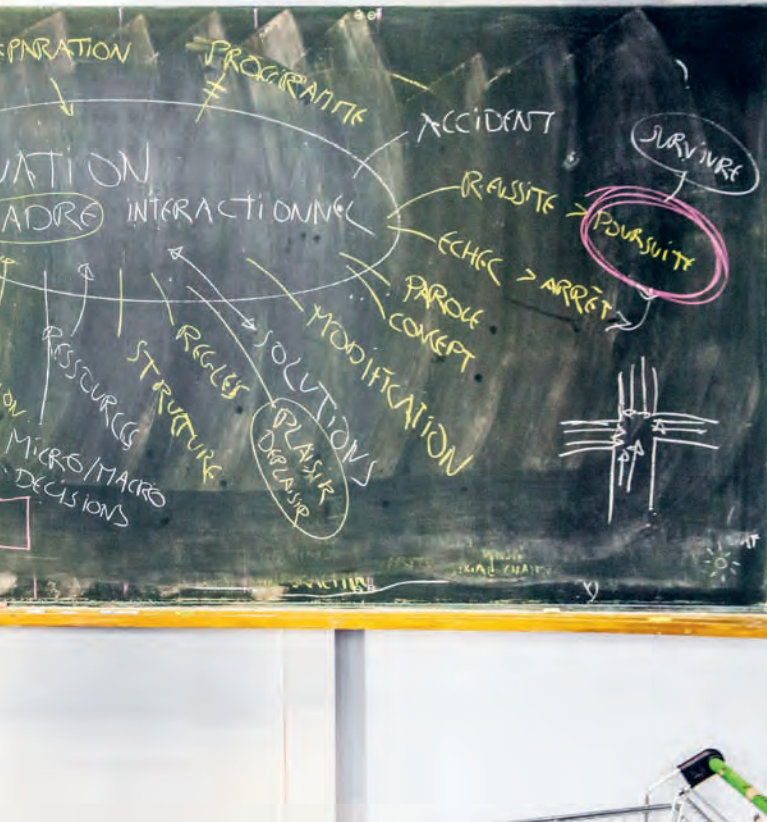 ÉPARATION
PROGRAMME
ACCIDENT
SURVIVRE
UATION
CADRE INTERACTIONNEL
RÉUSSITE > POURSUITE
ECHEC > ARRÊT
PAROLE
CONCEPT
MODIFICATION
SOLUTIONS
PLAISIR
DEPLAISIR
REGLES
STRUCTURE
RESSOURCES
ION
MICRO/MACRO
DECISIONS